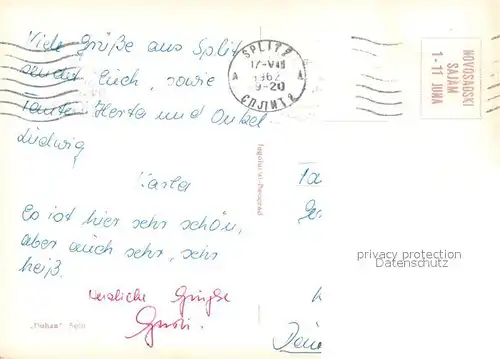 Viele Grüße aus Split
sendet Euch, sowie
Tante Herta und Onkel
Ludwig
Karla
Es ist hier sehr schön,
aber auch sehr, sehr
heiß.
herzliche Grüße
SPLIT 2
17-VIII
1962
9-20
A A
СПЛИТ 2
NOVOSADSKI
SAJAM
1-11 JUNA
privacy protection
Datenschutz
Split